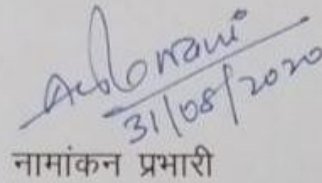 31/08/2020
नामांकन प्रभारी